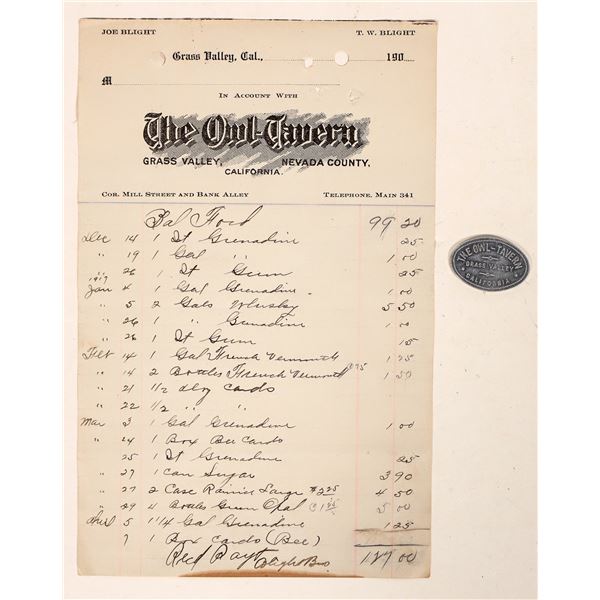 JOE BLIGHT T. W. BLIGHT
Grass Valley, Cal., 190
M
IN ACCOUNT WITH
The Owl-Tavern
GRASS VALLEY, NEVADA COUNTY,
CALIFORNIA.
COR. MILL STREET AND BANK ALLEY TELEPHONE, MAIN 341
Bal Ford 99 20
Dec 14 1 Qt Grenadine 25
" 19 1 Gal " 1 00
" 26 1 Qt Gum 25
1917
Jany 4 1 Gal Grenadine 1 00
" 5 2 Gals Whisky 5 50
" 26 1 " Grenadine 1 00
" 26 1 Qt Gum 15
Feb 14 1 Gal French Vermouth 1 25
" 14 2 Bottles French Vermouth .75 1 50
" 21 1/2 doz Cards
" 22 1/2 " "
Mar 3 1 Gal Grenadine 1 00
" 24 1 Box Bee Cards
25 1 Qt Grenadine 25
" 27 1 can Sugar 3 90
" 27 2 Case Rainier Large $2.25 4 50
" 29 4 Bottles Gum Opal @1.25 5 00
5 1 1/4 Gal Grenadine 1 25
7 1 Box Cards (Bee)
127 00
Recd Payt Blight Bros.
THE OWL-TAVERN
GRASS VALLEY
CALIFORNIA